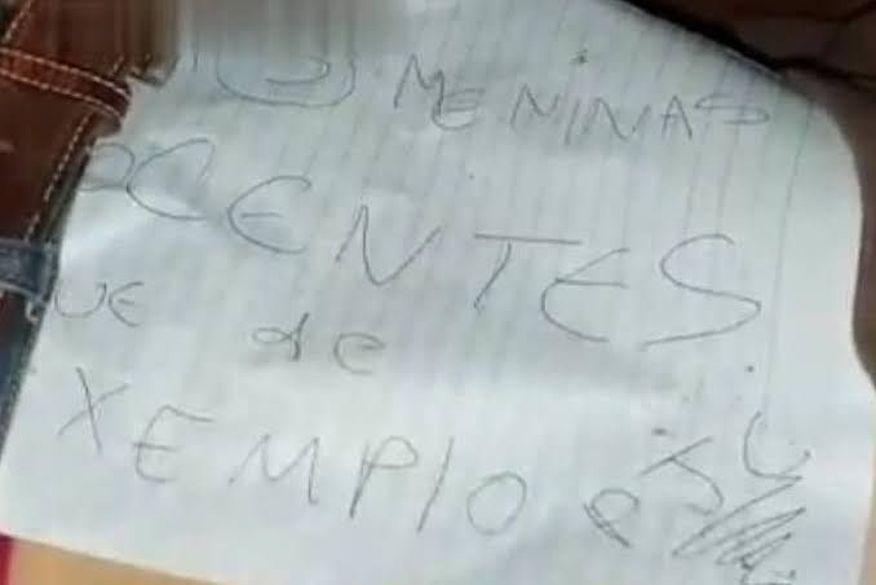 MENINAS
CENTES
UE de
XEMPlO